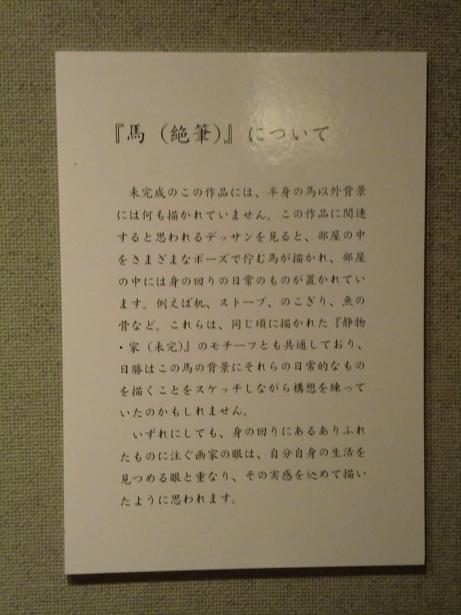 『馬（絶筆）』について
未完成のこの作品には、半身の馬以外背景
には何も描かれていません。この作品に関連
すると思われるデッサンを見ると、部屋の中
をさまざまなポーズで佇む馬が描かれ、部屋
の中には身の回りの日常のものが置かれてい
ます。例えば机、ストーブ、のこぎり、魚の
骨など。これらは、同じ頃に描かれた『静物
・家（未完）』のモチーフとも共通しており、
日勝はこの馬の背景にそれらの日常的なもの
を描くことをスケッチしながら構想を練って
いたのかもしれません。
いずれにしても、身の回りにあるありふれ
たものに注ぐ画家の眼は、自分自身の生活を
見つめる眼と重なり、その実感を込めて描い
たように思われます。